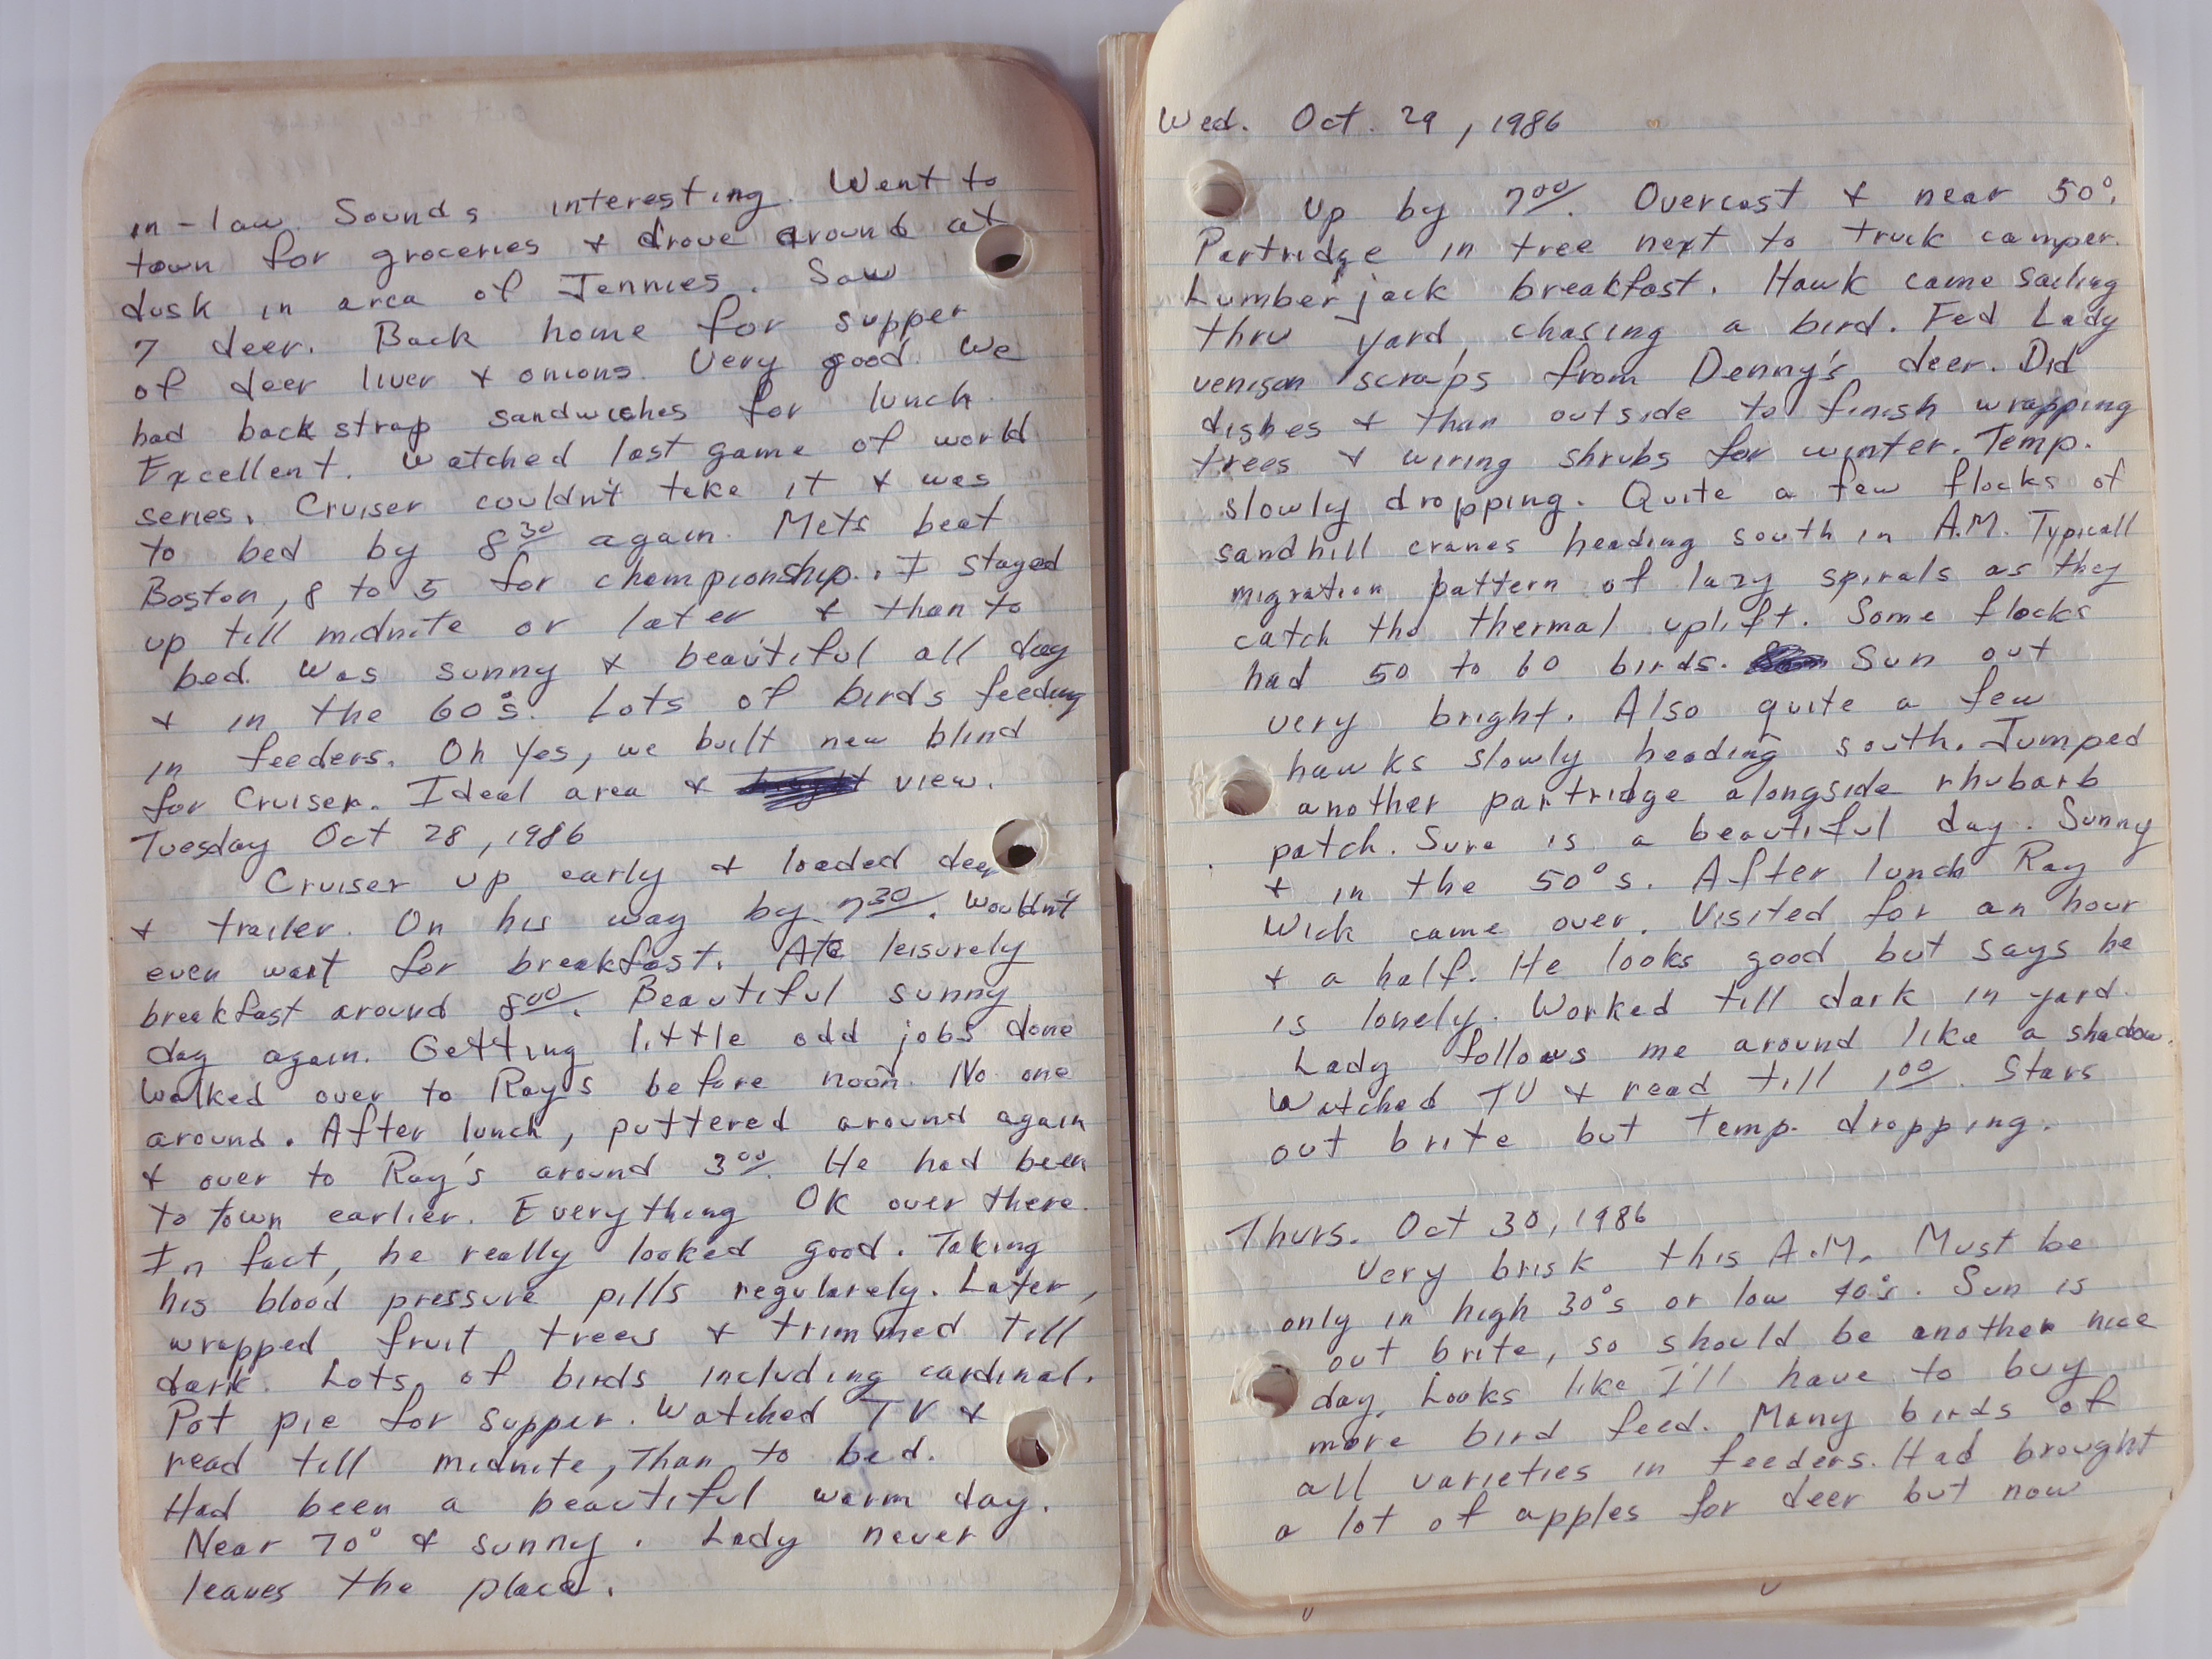 in-law. Sounds interesting. Went to
town for groceries & drove around at
dusk in area of Jennies. Saw
7 deer. Back home for supper
of deer liver & onions. Very good. We
had back strap sandwiches for lunch.
Excellent. Watched last game of world
series. Cruiser couldn't take it & was
to bed by 8³⁰ again. Mets beat
Boston, 8 to 5 for championship. I stayed
up till midnite or later & than to
bed. Was sunny & beautiful all day
& in the 60°s. Lots of birds feeding
in feeders. Oh Yes, we built new blind
for Cruiser. Ideal area & view.
Tuesday Oct 28, 1986
Cruiser up early & loaded deer
& trailer. On his way by 7³⁰. Wouldn't
even wait for breakfast. Ate leisurely
breakfast around 8⁰⁰. Beautiful sunny
day again. Getting little odd jobs done
Walked over to Ray's before noon. No one
around. After lunch, puttered around again
& over to Ray's around 3⁰⁰. He had been
to town earlier. Everything OK over there.
In fact, he really looked good. Taking
his blood pressure pills regularely. Later,
wrapped fruit trees & trimmed till
dark. Lots of birds including cardinal.
Pot pie for supper. Watched TV &
read till midnite, Than to bed.
Had been a beautiful warm day.
Near 70° & sunny. Lady never
leaves the place.
Wed. Oct. 29, 1986
Up by 7⁰⁰. Overcast & near 50°.
Partridge in tree next to truck camper.
Lumberjack breakfast. Hawk came sailing
thru yard, chasing a bird. Fed Lady
venison scraps from Denny's deer. Did
dishes & than outside to finish wrapping
trees & wiring shrubs for winter. Temp.
slowly dropping. Quite a few flocks of
sandhill cranes heading south in A.M. Typicall
migration pattern of lazy spirals as they
catch the thermal uplift. Some flocks
had 50 to 60 birds. Sun out
very bright. Also quite a few
hawks slowly heading south. Jumped
another partridge alongside rhubarb
patch. Sure is a beautiful day. Sunny
& in the 50°s. After lunch Ray
Wick came over. Visited for an hour
& a half. He looks good but says he
is lonely. Worked till dark in yard.
Lady follows me around like a shadow.
Watched TV & read till 1⁰⁰. Stars
out brite but Temp. dropping.
Thurs. Oct 30, 1986
Very brisk this A.M. Must be
only in high 30°s or low 40°s. Sun is
out brite, so should be another nice
day. Looks like I'll have to buy
more bird feed. Many birds of
all varieties in feeders. Had brought
a lot of apples for deer but now